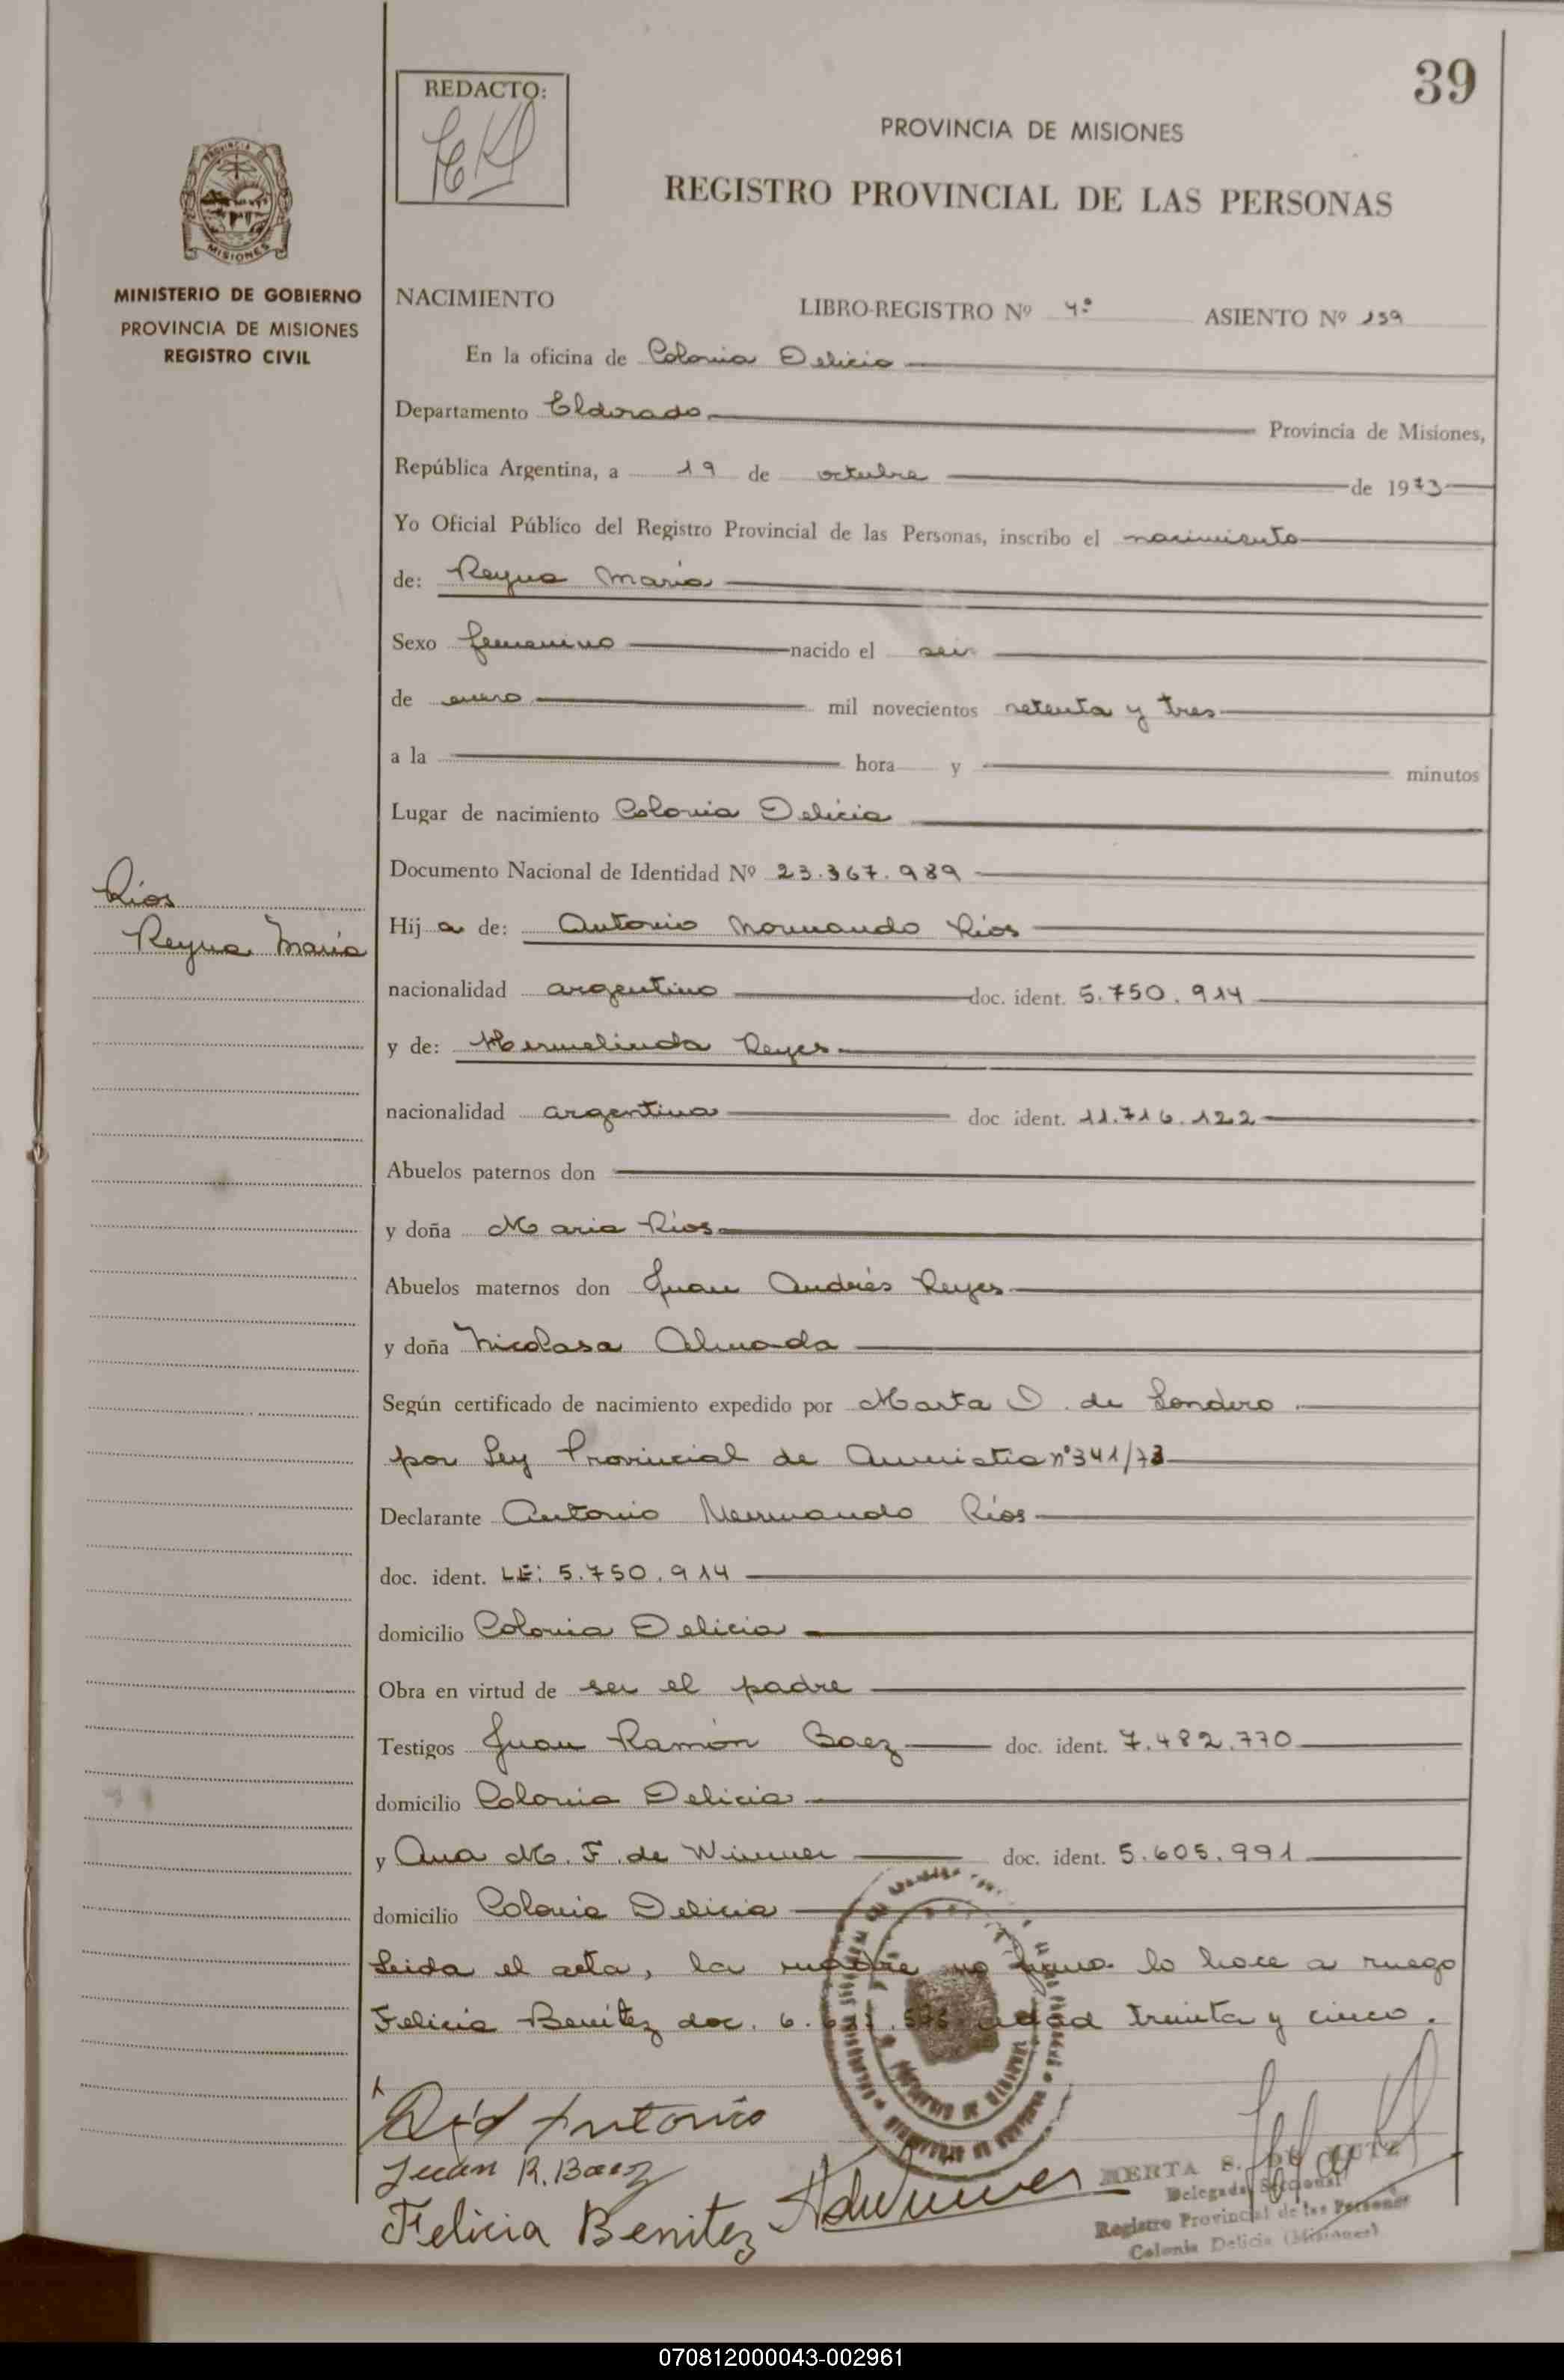 39
REDACTO:
PROVINCIA DE MISIONES
REGISTRO PROVINCIAL DE LAS PERSONAS
PROVINCIA DE
MISIONES
MINISTERIO DE GOBIERNO
PROVINCIA DE MISIONES
REGISTRO CIVIL
NACIMIENTO LIBRO-REGISTRO Nº 4º ASIENTO Nº 159
En la oficina de Colonia Delicia
Departamento Eldorado Provincia de Misiones,
República Argentina, a 19 de octubre de 1973
Yo Oficial Público del Registro Provincial de las Personas, inscribo el nacimiento
de: Reyna María
Sexo femenino nacido el seis
de enero mil novecientos setenta y tres
a la hora y minutos
Lugar de nacimiento Colonia Delicia
Documento Nacional de Identidad Nº 23.367.989
Ríos
Reyna María
Hij a de: Antonio Normando Ríos
nacionalidad argentino doc. ident. 5.750.914
y de: Hermelinda Reyes
nacionalidad argentina doc ident. 11.716.122
Abuelos paternos don
y doña Maria Ríos
Abuelos maternos don Juan Andrés Reyes
y doña Nicolasa Almada
Según certificado de nacimiento expedido por Marta D. de Londero
por Ley Provincial de Amnistia nº 341/73
Declarante Antonio Normando Ríos
doc. ident. LE: 5.750.914
domicilio Colonia Delicia
Obra en virtud de ser el padre
Testigos Juan Ramón Baez doc. ident. 7.482.770
domicilio Colonia Delicia
y Ana M. F. de Wimmer doc. ident. 5.605.991
domicilio Colonia Delicia
Leida el acta, la madre no firma lo hace a ruego
Felicia Benítez doc. 6. edad treinta y cinco.
Antonio
Juan R. Baez
Felicia Benitez
Delegada Seccional
Registro Provincial de las Personas
Colonia Delicia (Misiones)
070812000043-002961